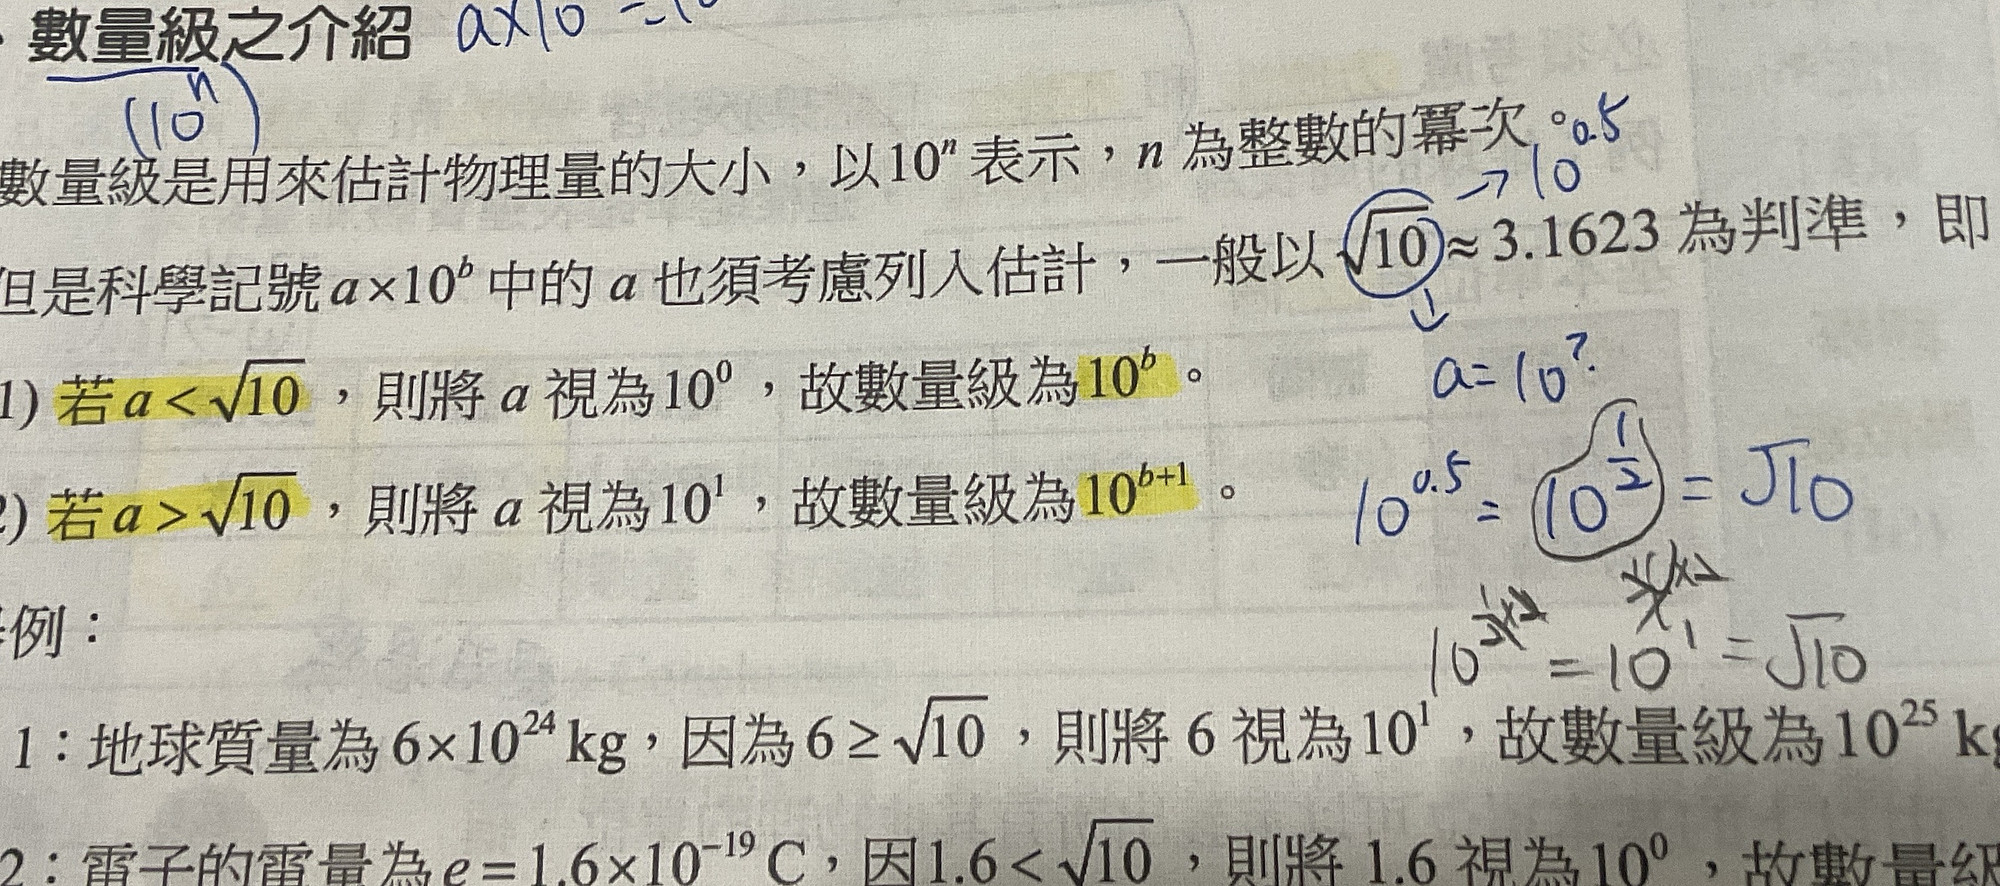 數量級之介紹 a×10
(10ⁿ)
數量級是用來估計物理量的大小，以10ⁿ表示，n 為整數的冪次。
→10^0.5
但是科學記號 a×10ᵇ 中的 a 也須考慮列入估計，一般以 √10 ≈ 3.1623 為判準，即
↓
a=10^?
1) 若 a < √10 ，則將 a 視為10⁰，故數量級為10ᵇ。
2) 若 a > √10 ，則將 a 視為10¹，故數量級為10ᵇ⁺¹。
10^0.5 = 10^(1/2) = √10
= 10¹ = √10
例：
1：地球質量為 6×10²⁴ kg，因為 6 ≥ √10 ，則將 6 視為10¹，故數量級為10²⁵ kg
2：電子的電量為 e = 1.6×10⁻¹⁹ C，因1.6 < √10 ，則將 1.6 視為10⁰，故數量級